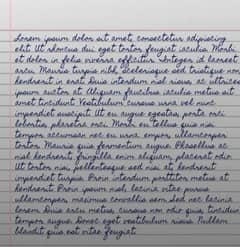 Lorem ipsum dolor sit amet, consectetur adipiscing
elit. Ut rhoncus dui eget tortor feugiat iaculis. Morbi
et dolor in felis viverra efficitur. Integer id laoreet
arcu. Mauris turpis nibh, scelerisque sed tristique non,
hendrerit in erat. Duis interdum nisl risus, ac ultrices
ipsum auctor at. Aliquam faucibus iaculis metus sit
amet tincidunt. Vestibulum cursus urna vel nunc
imperdiet suscipit. Ut eu augue egestas, porta orci
lobortis, pharetra orci. Morbi eu tellus quis nisi
tempor accumsan nec eu urna. empor, ullamcorper
tortor. Mauris quis fermentum augue. Phasellus ac
nisl hendrerit, fringilla enim aliquam, placerat odio.
Ut tortor nisi, pellentesque sed nisi at, hendrerit
imperdiet turpis. Proin interdum porttitor metus at
hendrerit. Proin ipsum nisl, lacinia vitae purus
ullamcorper, maximus convallis sem. Sed nec lacinia
lorem. Duis arcu metus, cursus non odio quis, tincidunt
tempor augue. Donec eget vestibulum risus. Nullam
blandit quis est vitae feugiat.